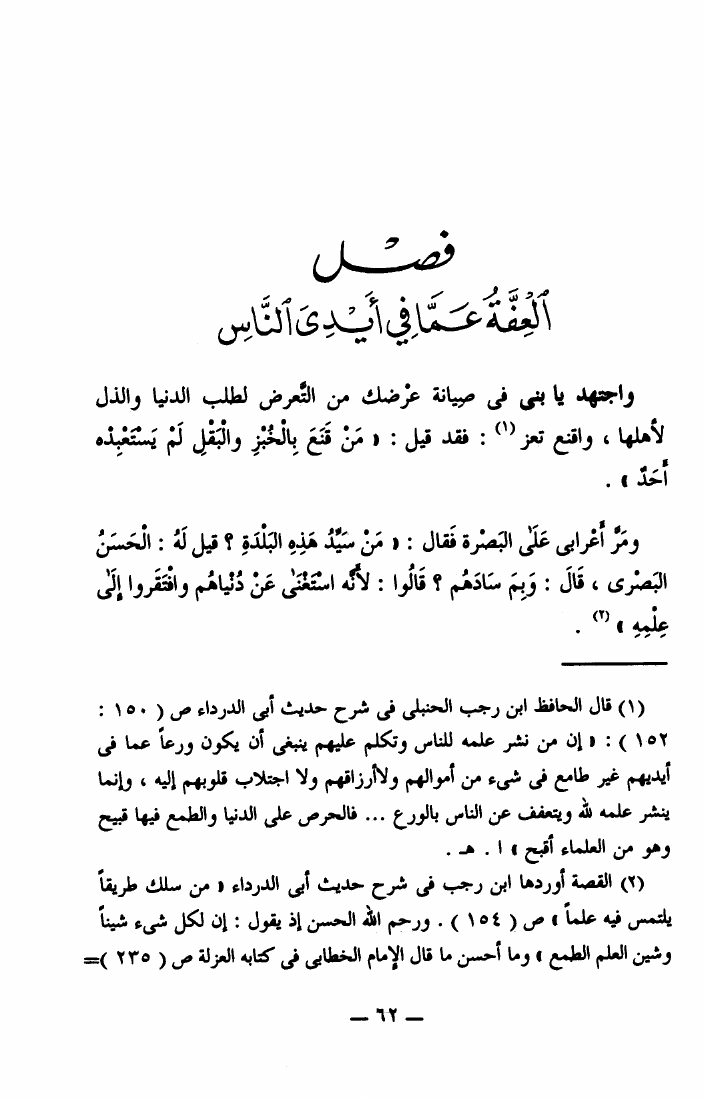 فصل
ٱلْعِفَّةُ عَمَّا فِي أَيْدِى ٱلنَّاسِ
واجتهد يا بنى فى صِيانة عرْضك من التَّعرض لطلب الدنيا والذل
لأهلها ، واقنع تعز (١) : فقد قيل : « مَنْ قَنَعَ بِالْخُبْزِ والْبَقْلِ لَمْ يَسْتَعْبِدْه
أَحَدٌ » .
ومَرَّ أَعْرابى عَلَى البَصْرة فَقال : « مَنْ سَيِّدُ هَذِهِ البَلْدَةِ ؟ قيل لَهُ : الْحَسَنُ
البَصْرى ، قَالَ : وَبِمَ سَادَهُم ؟ قَالُوا : لأنَّه اسْتَغْنَى عَنْ دُنْياهُم وافْتَقَروا إلَى
عِلْمِهِ » (٢) .
(١) قال الحافظ ابن رجب الحنبلى فى شرح حديث أبى الدرداء ص ( ١٥٠ :
١٥٢ ) : « إن من نشر علمه للناس وتكلم عليهم ينبغى أن يكون ورعاً عما فى
أيديهم غير طامع فى شىء من أموالهم ولاأرزاقهم ولا اجتلاب قلوبهم إليه ، وإنما
ينشر علمه لله ويتعفف عن الناس بالورع ... فالحرص على الدنيا والطمع فيها قبيح
وهو من العلماء أقبح » ا . هـ .
(٢) القصة أوردها ابن رجب فى شرح حديث أبى الدرداء « من سلك طريقاً
يلتمس فيه علماً » ص ( ١٥٤ ) . ورحم الله الحسن إذ يقول : إن لكل شىء شيناً
وشين العلم الطمع » وما أحسن ما قال الإمام الخطابى فى كتابه العزلة ص ( ٢٣٥ )=
— ٦٢ —